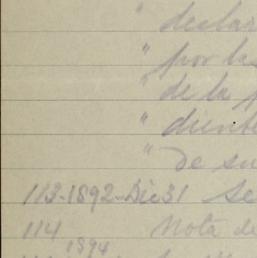 " declar
" por la
" de la p
" diente
" de su
113-1892-Dic 31 Se
114 Nota de
1894